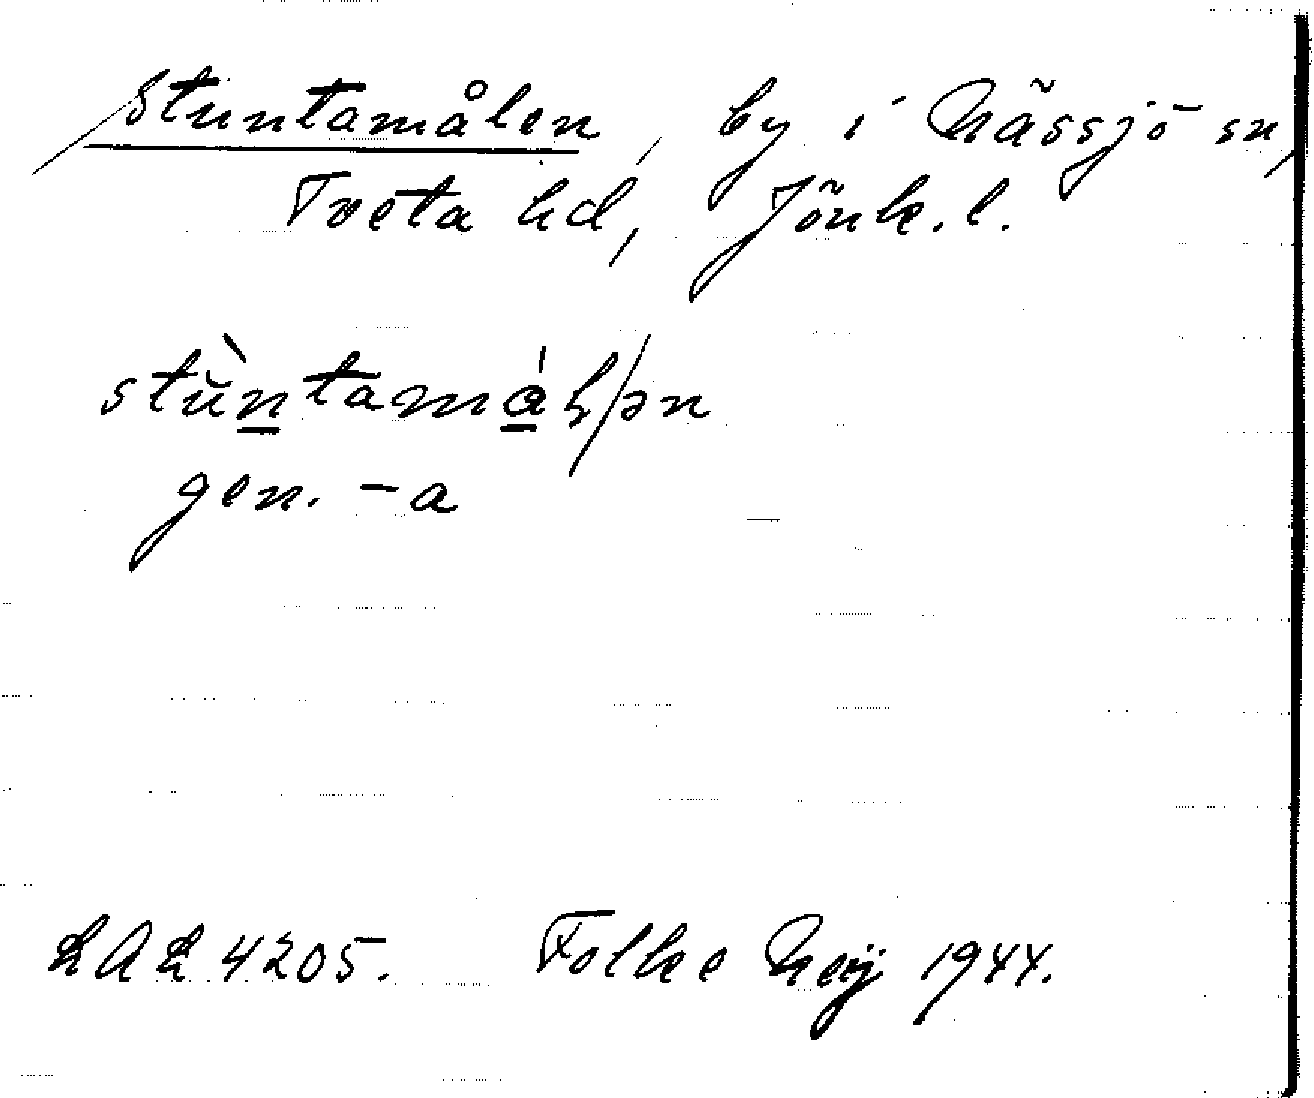 Stuntamålen, by i Nässjö sn,
Tveta hd, Jönk. l.
stùntamáɭ/ən
gen. -a
LAL 4205. Folke Neij 1944.